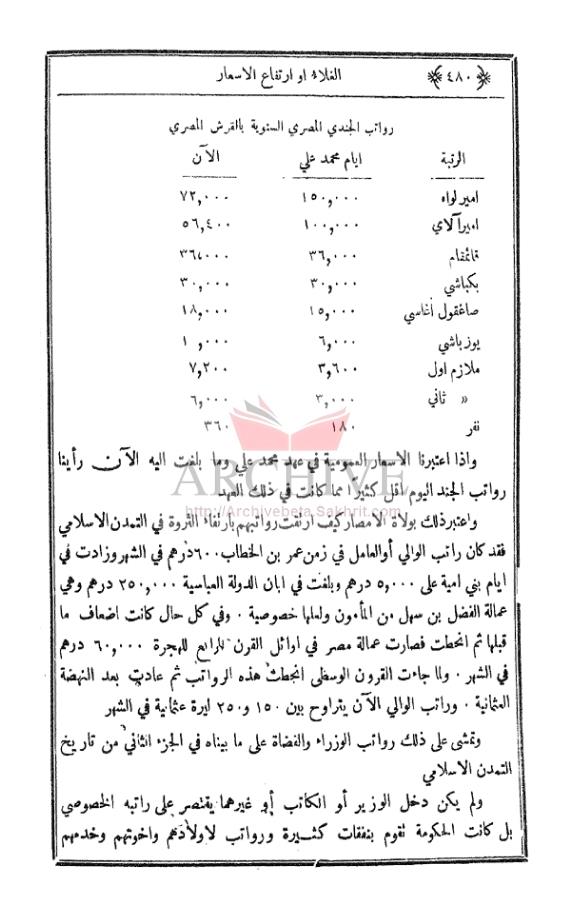 ٤٨٠ الغلاء او ارتفاع الاسعار
رواتب الجندي المصري السنوية بالقرش المصري
الرتبة ايام محمد علي الآن
امير لواء ١٥٠,٠٠٠ ٧٢,٠٠٠
اميرآلاي ١٠٠,٠٠٠ ٥٦,٤٠٠
قائمقام ٣٦,٠٠٠ ٣٦,٠٠٠
بكباشي ٣٠,٠٠٠ ٣٠,٠٠٠
صاغقول أغاسي ١٥,٠٠٠ ١٨,٠٠٠
يوزباشي ٦,٠٠٠
ملازم اول ٣,٦٠٠ ٧,٢٠٠
« ثاني ٣,٠٠٠ ٦,٠٠٠
نفر ١٨٠ ٣٦٠
واذا اعتبرنا الاسعار العمومية في عهد محمد علي وما بلغت اليه الآن رأينا
رواتب الجند اليوم أقل كثيراً مما كانت في ذلك العهد
ARCHIVE
http://Archivebeta.Sakhrit.com
واعتبر ذلك بولاة الامصار كيف ارتقت رواتبهم بارتقاء الثروة في التمدن الاسلامي
فقد كان راتب الوالي أو العامل في زمن عمر بن الخطاب ٦٠٠ درهم في الشهر وزادت في
ايام بني امية على ٥,٠٠٠ درهم وبلغت في ابان الدولة العباسية ٢٥٠,٠٠٠ درهم وهي
عمالة الفضل بن سهل من المأمون ولعلها خصوصية ٠ وفي كل حال كانت اضعاف ما
قبلها ثم انحطت فصارت عمالة مصر في اوائل القرن الرابع للهجرة ٦٠,٠٠٠ درهم
في الشهر ٠ ولما جاءت القرون الوسطى انحطت هذه الرواتب ثم عادت بعد النهضة
العثمانية ٠ وراتب الوالي الآن يتراوح بين ١٥٠ و ٢٥٠ ليرة عثمانية في الشهر
وتمشى على ذلك رواتب الوزراء والقضاة على ما بيناه في الجزء الثاني من تاريخ
التمدن الاسلامي
ولم يكن دخل الوزير أو الكاتب أو غيرهما يقتصر على راتبه الخصوصي
بل كانت الحكومة تقوم بنفقات كثيرة ورواتب لاولادهم واخوتهم وخدمهم